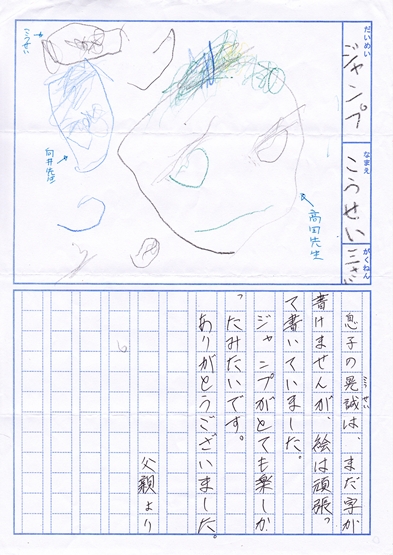 だいめい
ジャンプ
なまえ
こうせい
がくねん
三さい
高田先生
向井先生
こうせい
息子の晃誠は、まだ字が
書けませんが、絵は頑張っ
て書いていました。
ジャンプがとても楽しか
ったみたいです。
ありがとうございました。
父親より